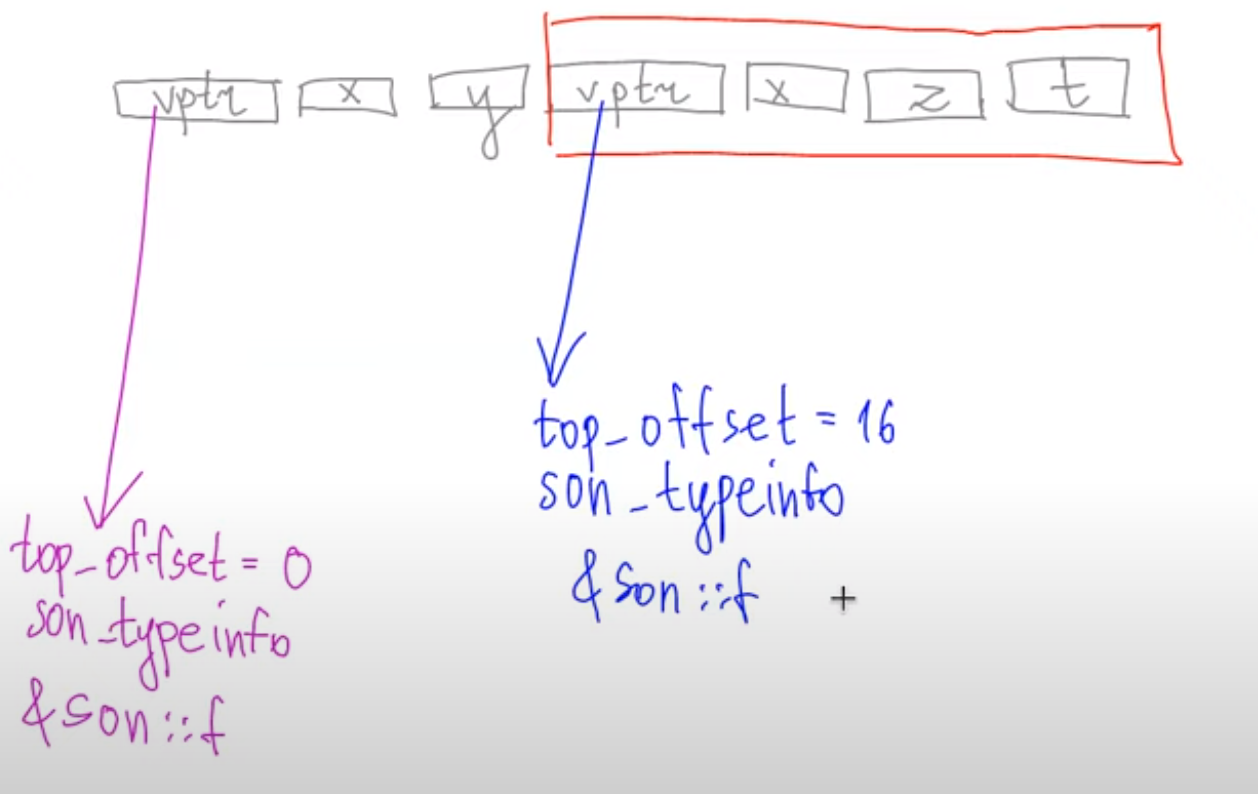 vptr x y vptr x z t
top_offset = 16
son_typeinfo
&son::f
top_offset = 0
son_typeinfo
&son::f